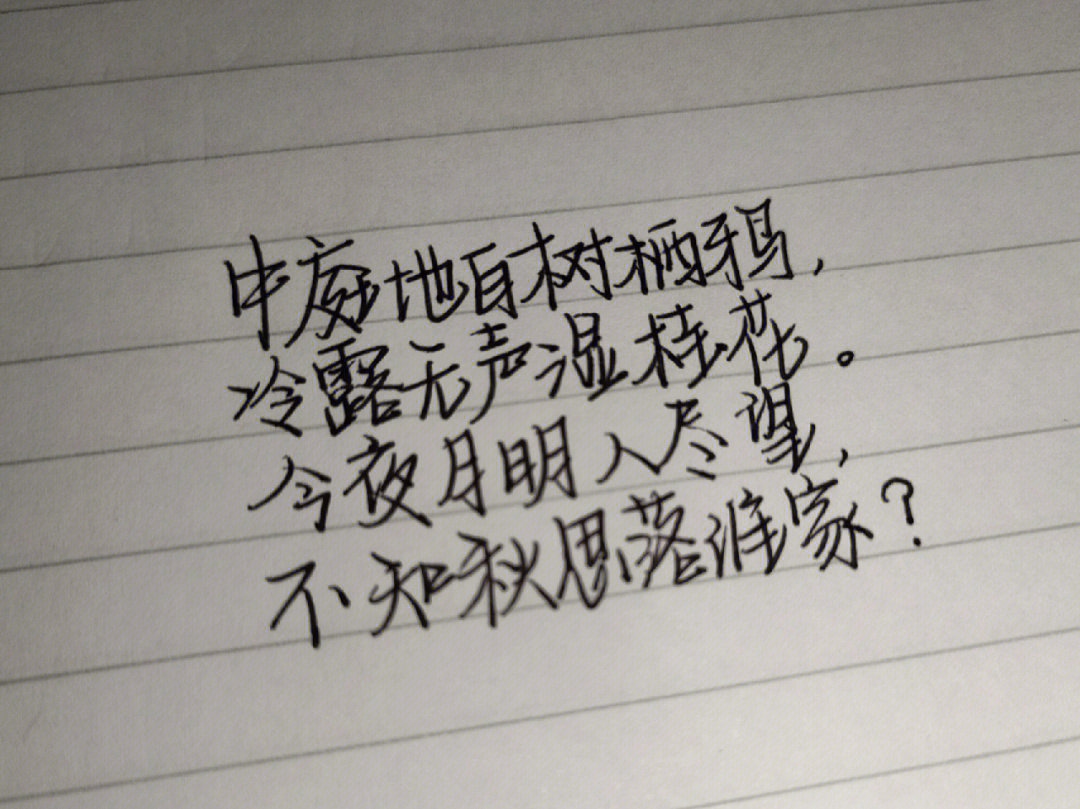 中庭地白树栖鸦,
冷露无声湿桂花。
今夜月明人尽望,
不知秋思落谁家?